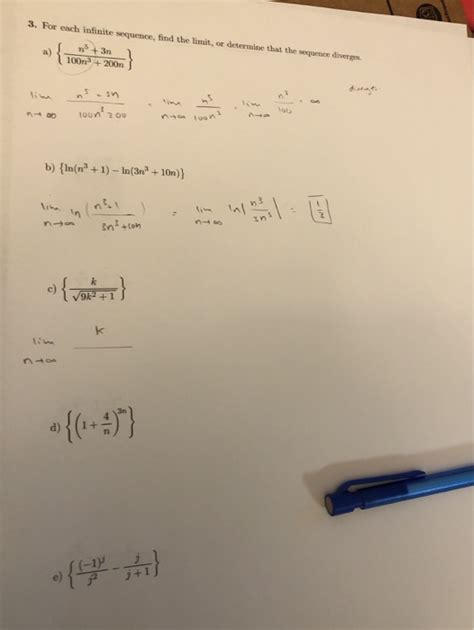 3. For each infinite sequence, find the limit, or determine that the sequence diverges.
a) { n^5 + 3n / 100n^3 + 200n }
lim n→∞ n^5 + 3n / 100n^3 200 = lim n→∞ n^5 / 100n^3 = lim n→∞ n^2 / 100 = ∞ diverges
b) {ln(n^3 + 1) − ln(3n^3 + 10n)}
lim n→∞ ln ( n^3+1 / 3n^3 + 10n ) = lim n→∞ ln | n^3 / 3n^3 | = 1/3
c) { k / √9k^2 + 1 }
lim n→∞ k
d) { (1 + 4/n)^3n }
e) { (−1)^j / j^2 − j / j + 1 }